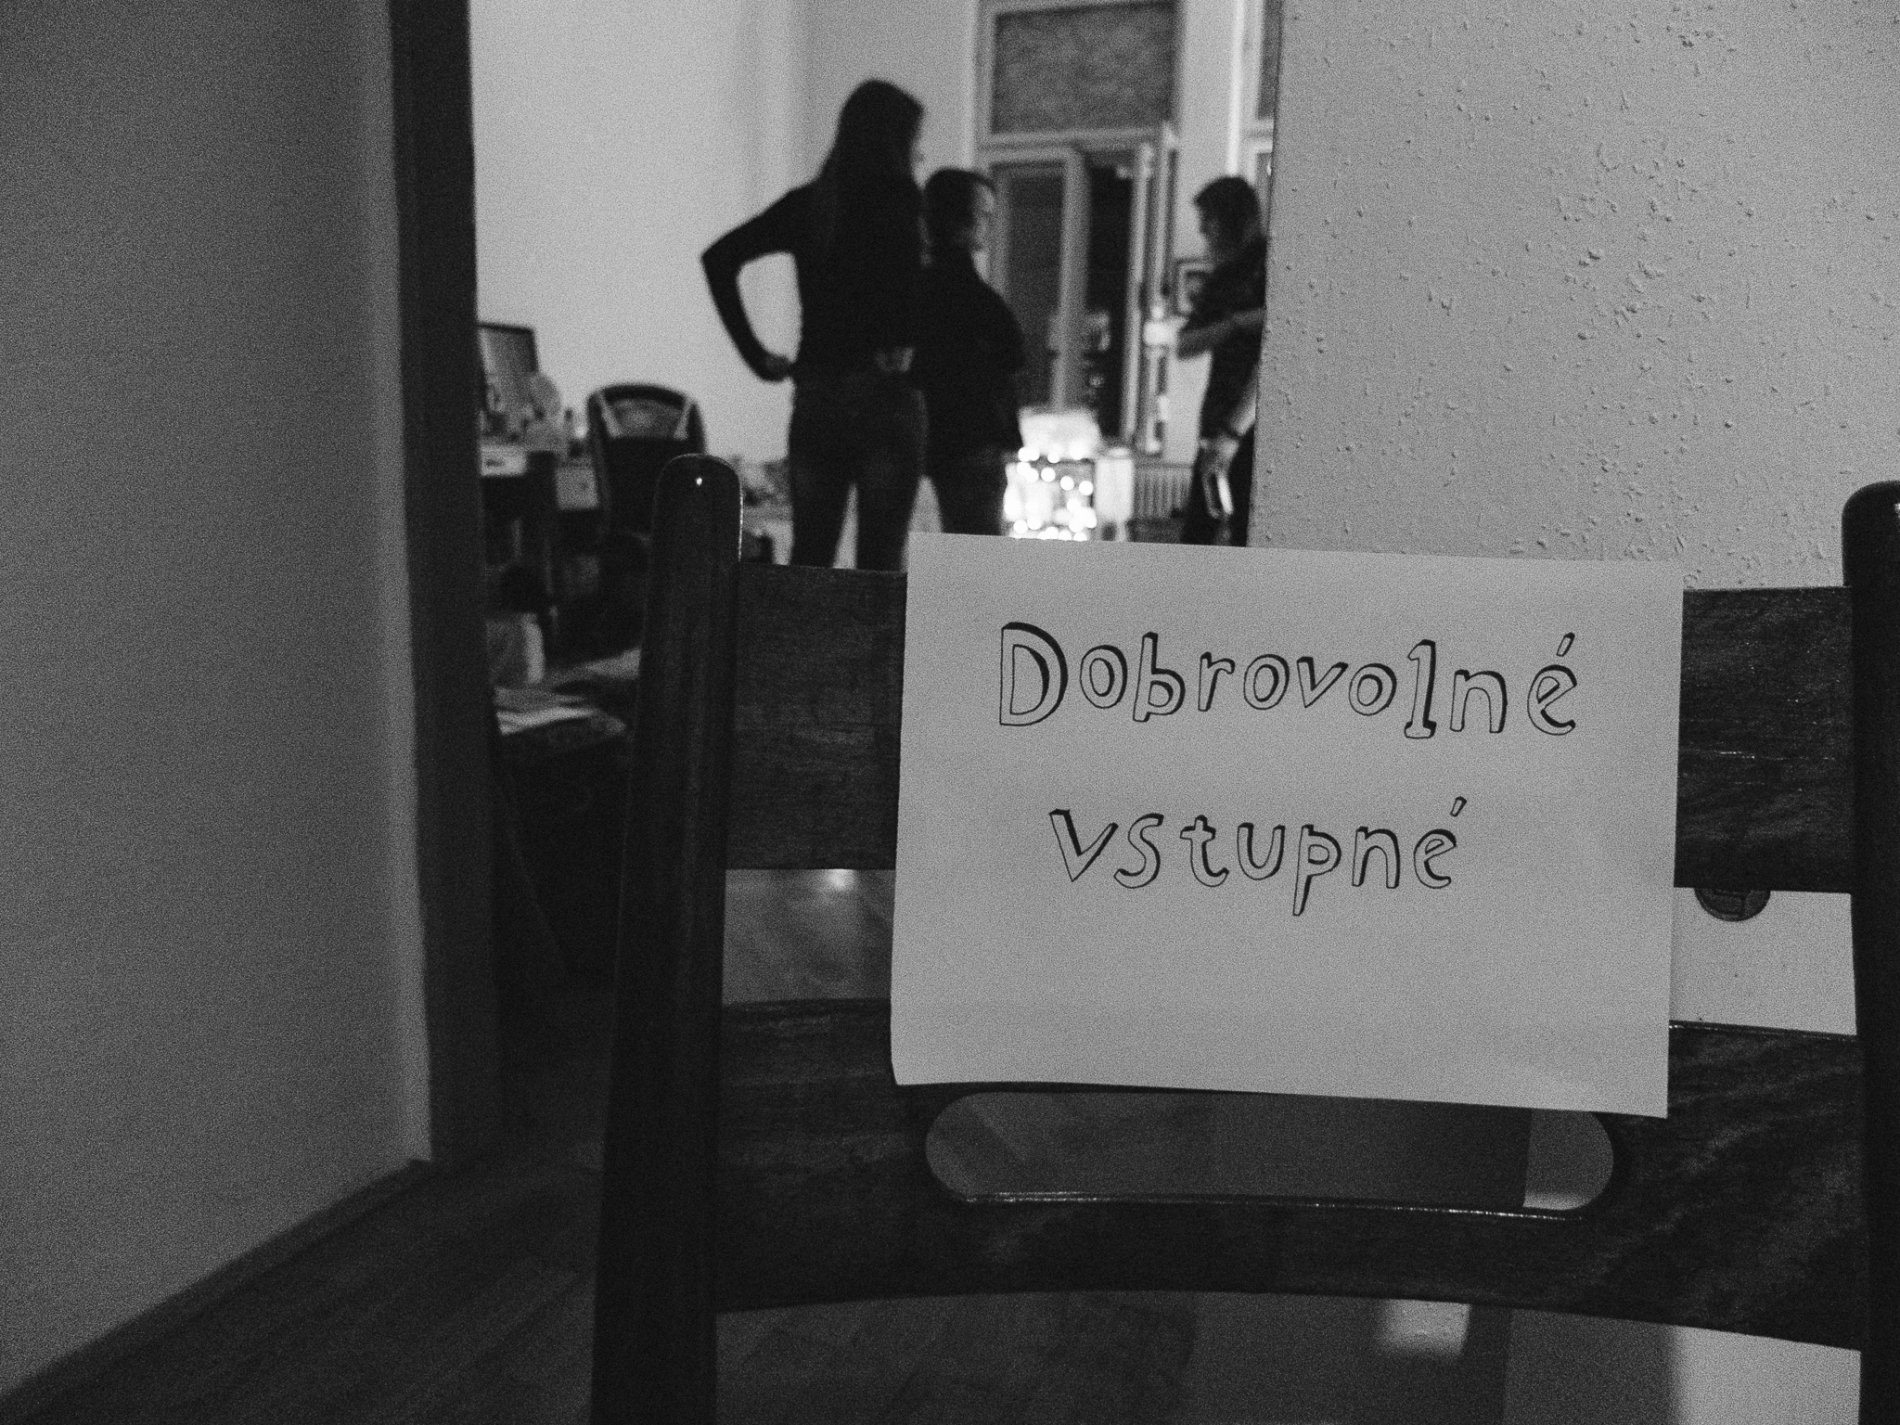 Dobrovolné
vstupné